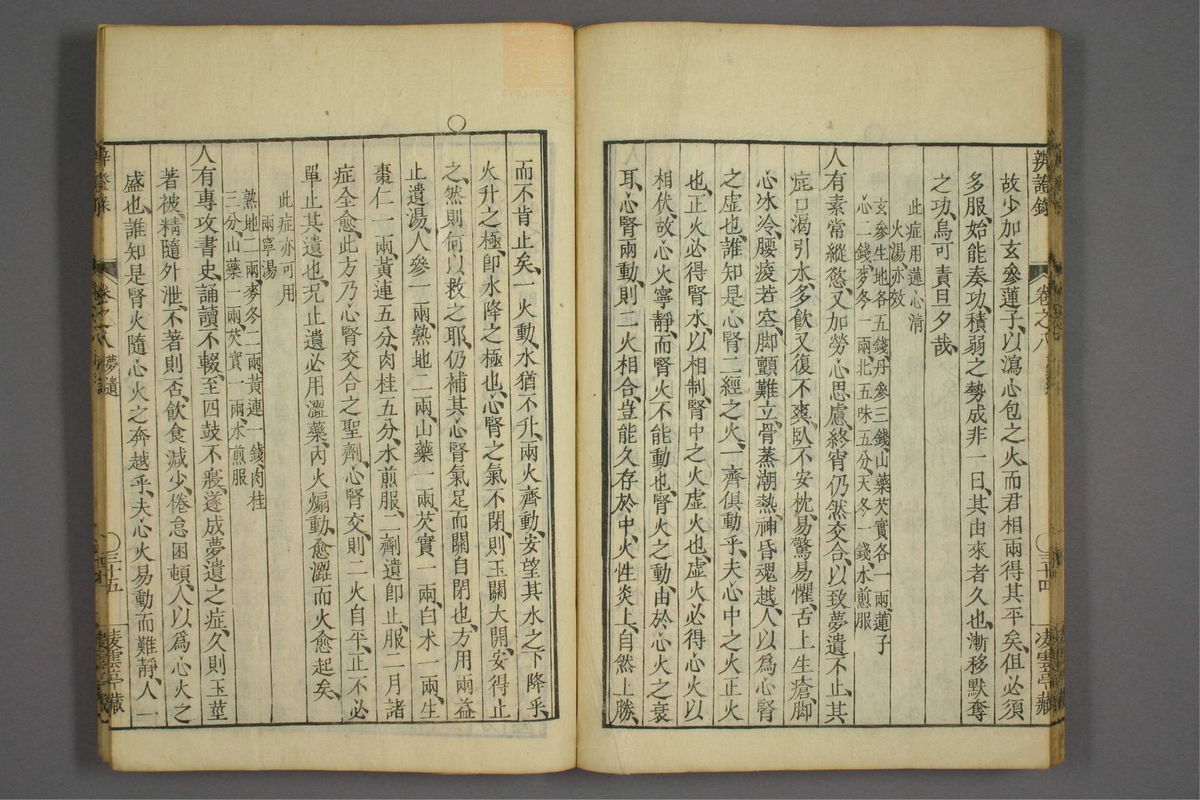 辨證錄 卷之八 三十四 凌雲亭藏
故少加玄參蓮子、以瀉心包之火、而君相兩得其平矣、但必須
多服、始能奏功、積弱之勢、成非一日、其由來者久也、漸移默奪
之功、烏可責旦夕哉、
此症用蓮心清
火湯亦效
玄參生地各五錢丹參三錢、山藥芡實各一兩、蓮子
心二錢、麥冬一兩、北五味五分、天冬一錢、水煎服
人有素常縱慾、又加勞心思慮、終宵仍然交合、以致夢遺不止、其
症口渴引水、多飲又復不爽、臥不安枕、易驚易懼、舌上生瘡、脚
心冰冷、腰痠若空、脚顫難立、骨蒸潮熱、神昏魂越、人以爲心腎
之虛也、誰知是心腎二經之火、一齊俱動乎、夫心中之火、正火
也、正火必得腎水以相制、腎中之火、虛火也、虛火必得心火以
相伏、故心火寧靜、而腎火不能動也、腎火之動、由於心火之衰
耳、心腎兩動、則二火相合、豈能久存於中、火性炎上、自然上勝
而不肯止矣、一火動、水猶不升、兩火齊動、安望其水之下降乎、
火升之極、卽水降之極也、心腎之氣不閉、則玉關大開、安得止
之、然則何以救之耶、仍補其心腎、氣足而關自閉也、方用兩益
止遺湯、人參一兩、熟地二兩、山藥一兩、芡實一兩、白朮一兩、生
棗仁一兩、黃連五分、肉桂五分、水煎服、二劑遺卽止、服二月諸
症全愈、此方乃心腎交合之聖劑、心腎交、則二火自平、正不必
單止其遺也、况止遺必用澀藥、內火煽動、愈澀而火愈起矣、
此症亦可用
兩寧湯
熟地二兩、麥冬二兩、黃連一錢、肉桂
三分、山藥一兩、芡實一兩、水煎服
人有專攻書史、誦讀不輟、至四鼓不寢、遂成夢遺之症、久則玉莖
著被、精隨外泄、不著則否、飮食減少、倦怠困頓、人以爲心火之
盛也、誰知是腎火隨心火之奔越乎、夫心火易動而難靜、人一
辨證錄 卷之八 夢遺 三十五 凌雲亭藏